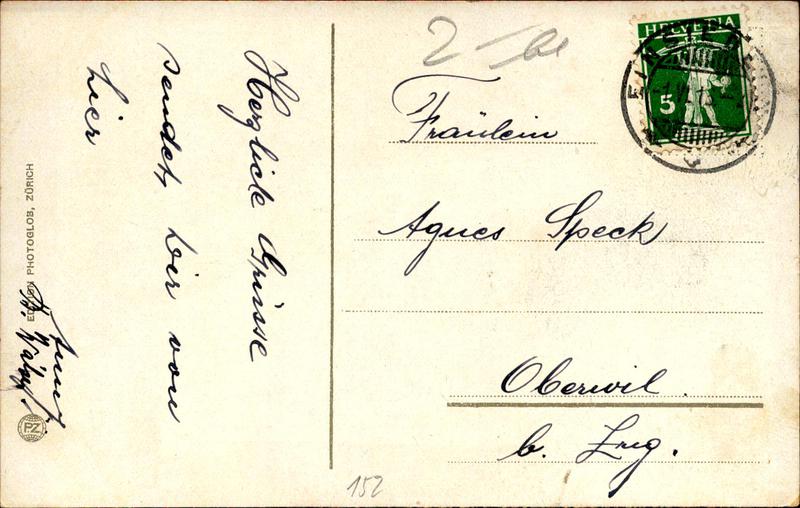 Herzliche Grüsse
sendet Dir von
hier
EDITION PHOTOGLOB, ZÜRICH
PZ
2 -
HELVETIA
5
Fräulein
Agnes Speck
Oberwil.
b. Zug.
152